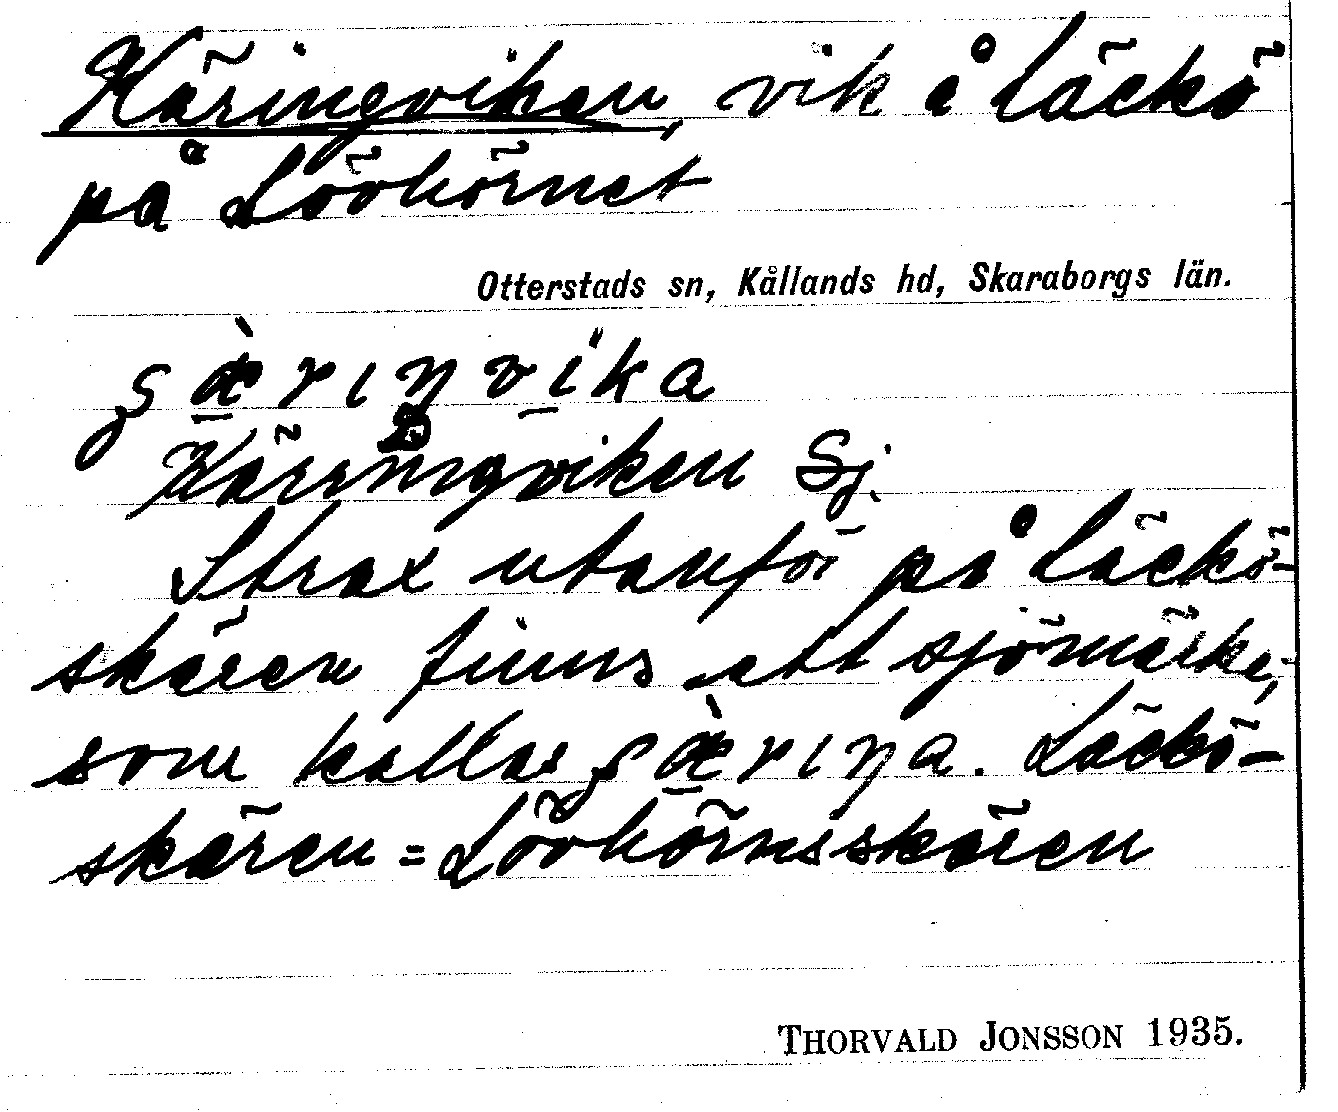 Käringviken, vik å Läckö
på Lövhörnet
Otterstads sn, Kållands hd, Skaraborgs län.
ʂæ̀rıŋvika
Kärringviken Sj.
Strax utanför på Läckö-
skären finns ett sjömärke,
som kallas ʂæ̀rıŋa. Läckö-
skären = Lövhörnsskären
THORVALD JONSSON 1935.